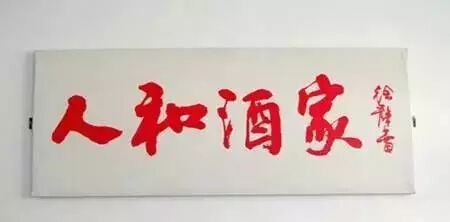 人和酒家
徐静蕾